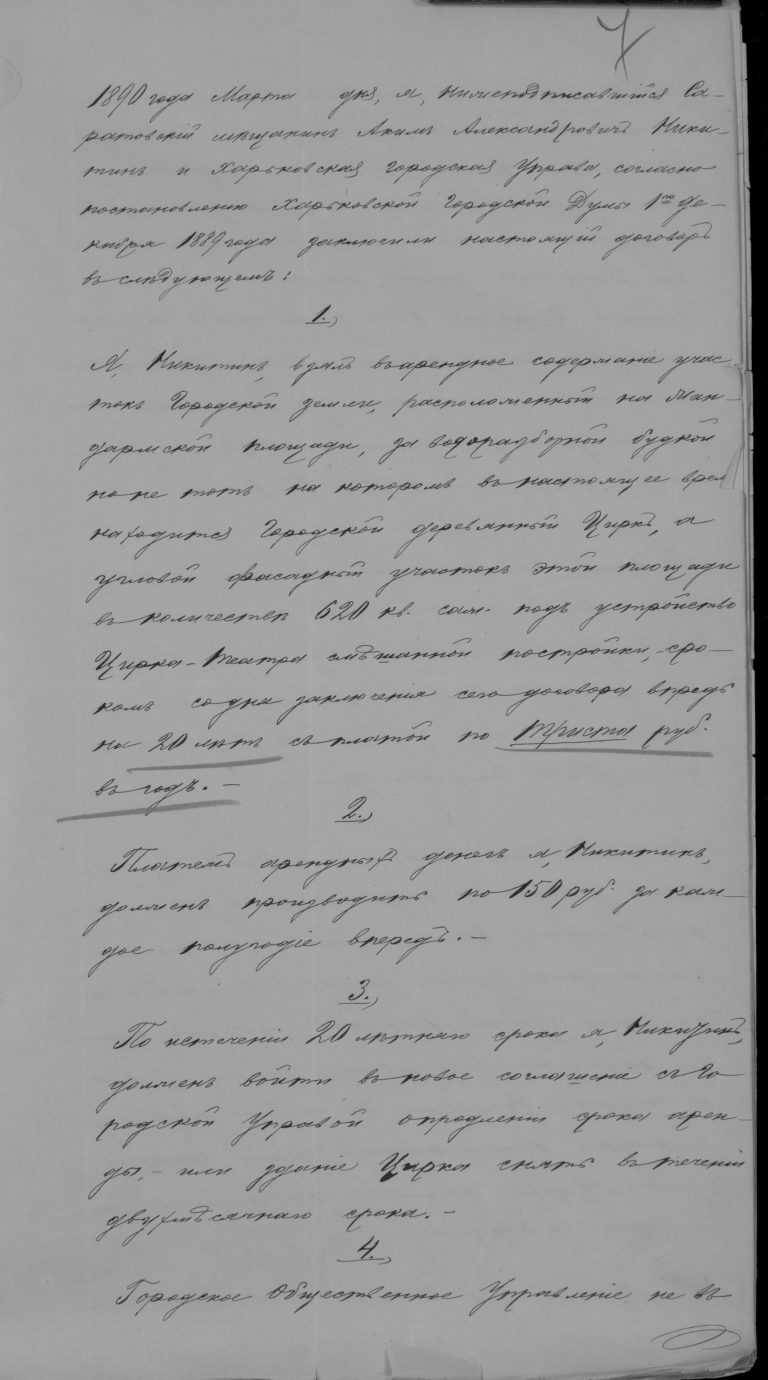 7
1890 года Марта дня, я, нижеподписавшійся Са-
ратовскій мѣщанинъ Акимъ Александровичъ Ники-
тинъ и Харьковская Городская Управа, согласно
постановленію Харьковской Городской Думы 1го де-
кабря 1889 года заключили настоящій договоръ
въ слѣдующемъ:
1.,
Я, Никитинъ, взялъ въ арендное содержаніе учас
токъ Городской земли, расположенный на Жан-
дармской площади, за водоразборной будкой
но не тотъ на которомъ въ настоящее врем
находится Городской деревянный Циркъ, а
угловой фасадный участокъ этой площади
въ количествѣ 620 кв. саж. подъ устройство
Цирка-театра смѣшанной постройки, - сро-
комъ со дня заключенія сего договора впредь
на 20 лѣтъ съ платой по триста руб.
въ годъ. -
2.,
Платежъ арендныхъ денегъ я, Никитинъ,
долженъ производить по 150 руб. за каж-
дое полугодіе впередъ. -
3.,
По истеченіи 20 лѣтняго срока я, Никитинъ,
долженъ войти въ новое соглашеніе съ Го
родской Управой опредленіи срока арен-
ды, - или зданіе Цирка снять въ теченіи
двухмѣсячнаго срока. -
4.,
Городское Общественное Управленіе не въ